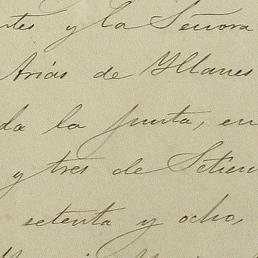 tes y la Señora
Arias de Yllanes
da la junta, en
y tres de Setiem
setenta y ocho,